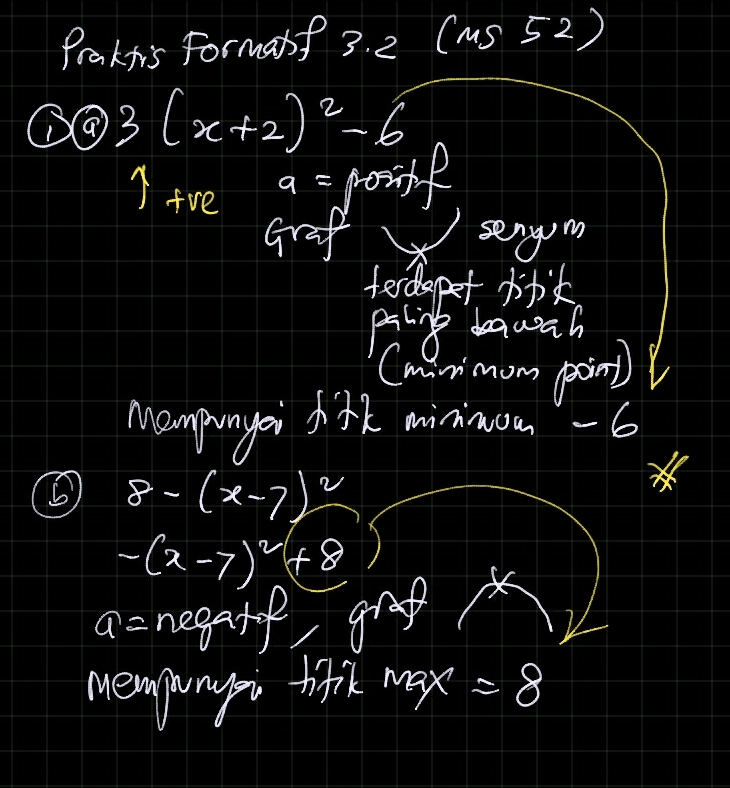 Praktis Formatif 3.2 (ms 52)
① ⓐ 3 (x+2)² - 6
↑ +ve
a = positif
Graf senyum
terdapat titik
paling bawah
(minimum point)
Mempunyai titik minimum - 6
ⓑ 8 - (x-7)²
-(x-7)² + 8
a = negatif, graf
mempunyai titik max = 8